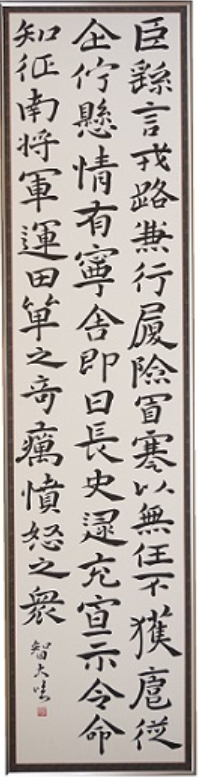 臣繇言戎路兼行履險冒寒以無任不獲扈従
企佇懸情有寧舎即日長史逯充宣示令命
知征南将軍運田単之奇癘憤怒之衆
智大